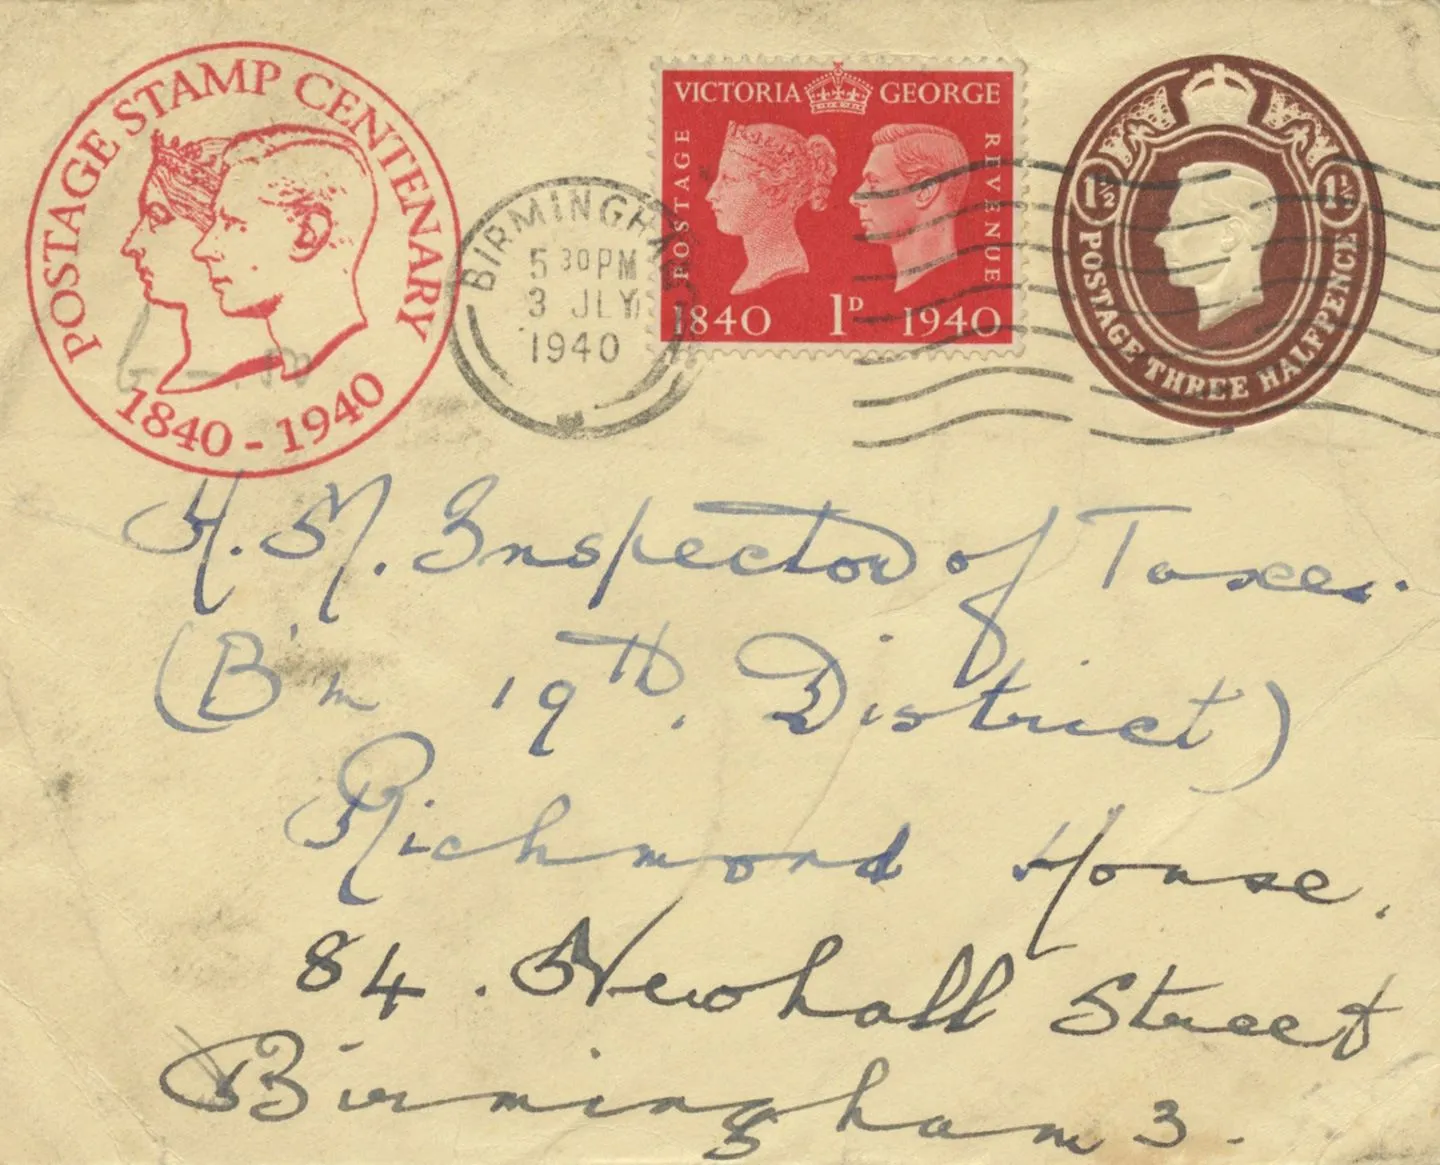 POSTAGE STAMP CENTENARY
1840 - 1940
BIRMINGHAM
5 30 PM
3 JLY
1940
VICTORIA GEORGE
POSTAGE
REVENUE
1840 1D 1940
1½ 1½
POSTAGE THREE HALFPENCE
H. M. Inspector of Taxes.
(B'm 19th. District)
Richmond House,
84. Newhall Street
Birmingham 3.